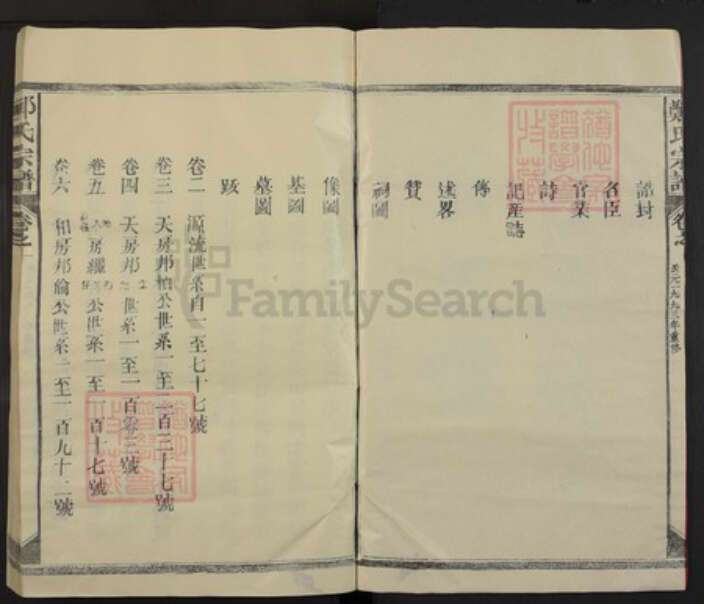 鄭氏宗譜
卷之一
公元一九九三年重修
誥封
名臣
官業
詩
記產誌
傳
述畧
贊
祠圖
像圖
基圖
墓圖
跋
卷二 源流世系自一至七十七號
卷三 天房邦柏公世系一至二百三十七號
卷四 天房邦 世系一至一百 三號
卷五 房 公世系一至一百十七號
卷六 和房邦倫公世系一至一百九十二號
氏宗譜
卷之一
FamilySearch